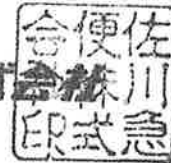 佐川急
便株式
会社印